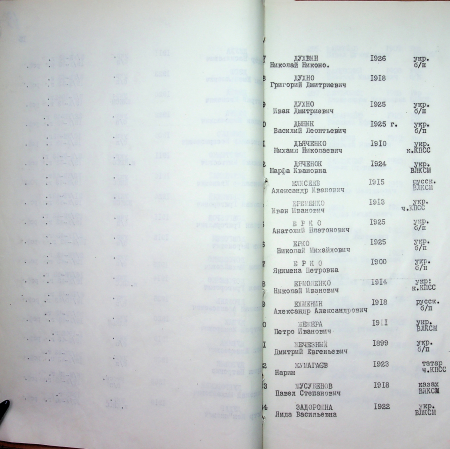 ДУХНИН 1926 укр.
Николай Никоно. б/п
8 ДУХНО 1918
Григорий Дмитриевич
9 ДУХНО 1925 укр.
Иван Дмитриевич б/п
0 1925 г. укр.
Василий Леонтьевич б/п
ДЬЯЧЕНКО 1910 укр.
Михаил Николаевич ч.КПСС
2 ДЯЧЕНОК 1924 укр.
Марфа Ивановна ВЛКСМ
1915 русск.
Александр Иванович ВЛКСМ
ЕРЕМЕНКО 1913 укр.
Иван Иванович ч.КПСС
Е Р К О 1925 укр.
Анатолий Платонович б/п
ЕРКО 1925 укр.
Николай Михайлович б/п
7 Е Р К О 1900 укр.
Якимена Петровна б/п
8 ЕРМОЛЕНКО 1914 укр.
Николай Иванович ч.КПСС
9 1918 русск.
Александр Александрович б/п
0 1911 укр.
Петро Иванович ВЛКСМ
1899 укр.
Дмитрий Евгеньевич б/п
2 ЖУМАГАЕВ 1923 татар
Карим ч.КПСС
3 ЖУСУПЕКОВ 1918 казах
Павел Степанович ВЛКСМ
4 ЗАДОРОЖНА 1922 укр.
Лида Васильевна ВЛКСМ